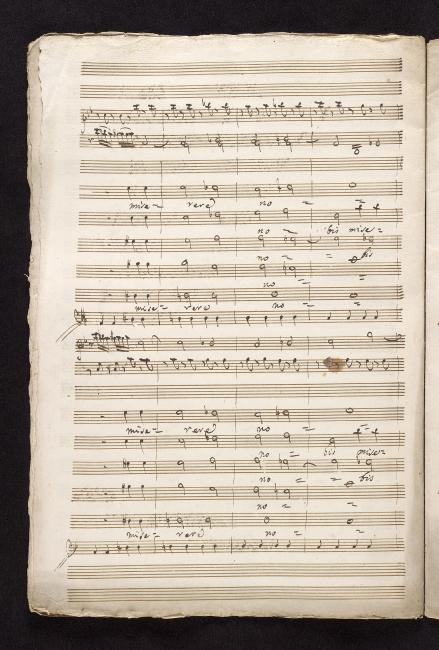 mise= rere no = =
no = bis mise=
no = = bis
no =
mise= rere no = =
mise= rere no =
no = bis mise=
no = = bis
no = =
mise= rere no = =